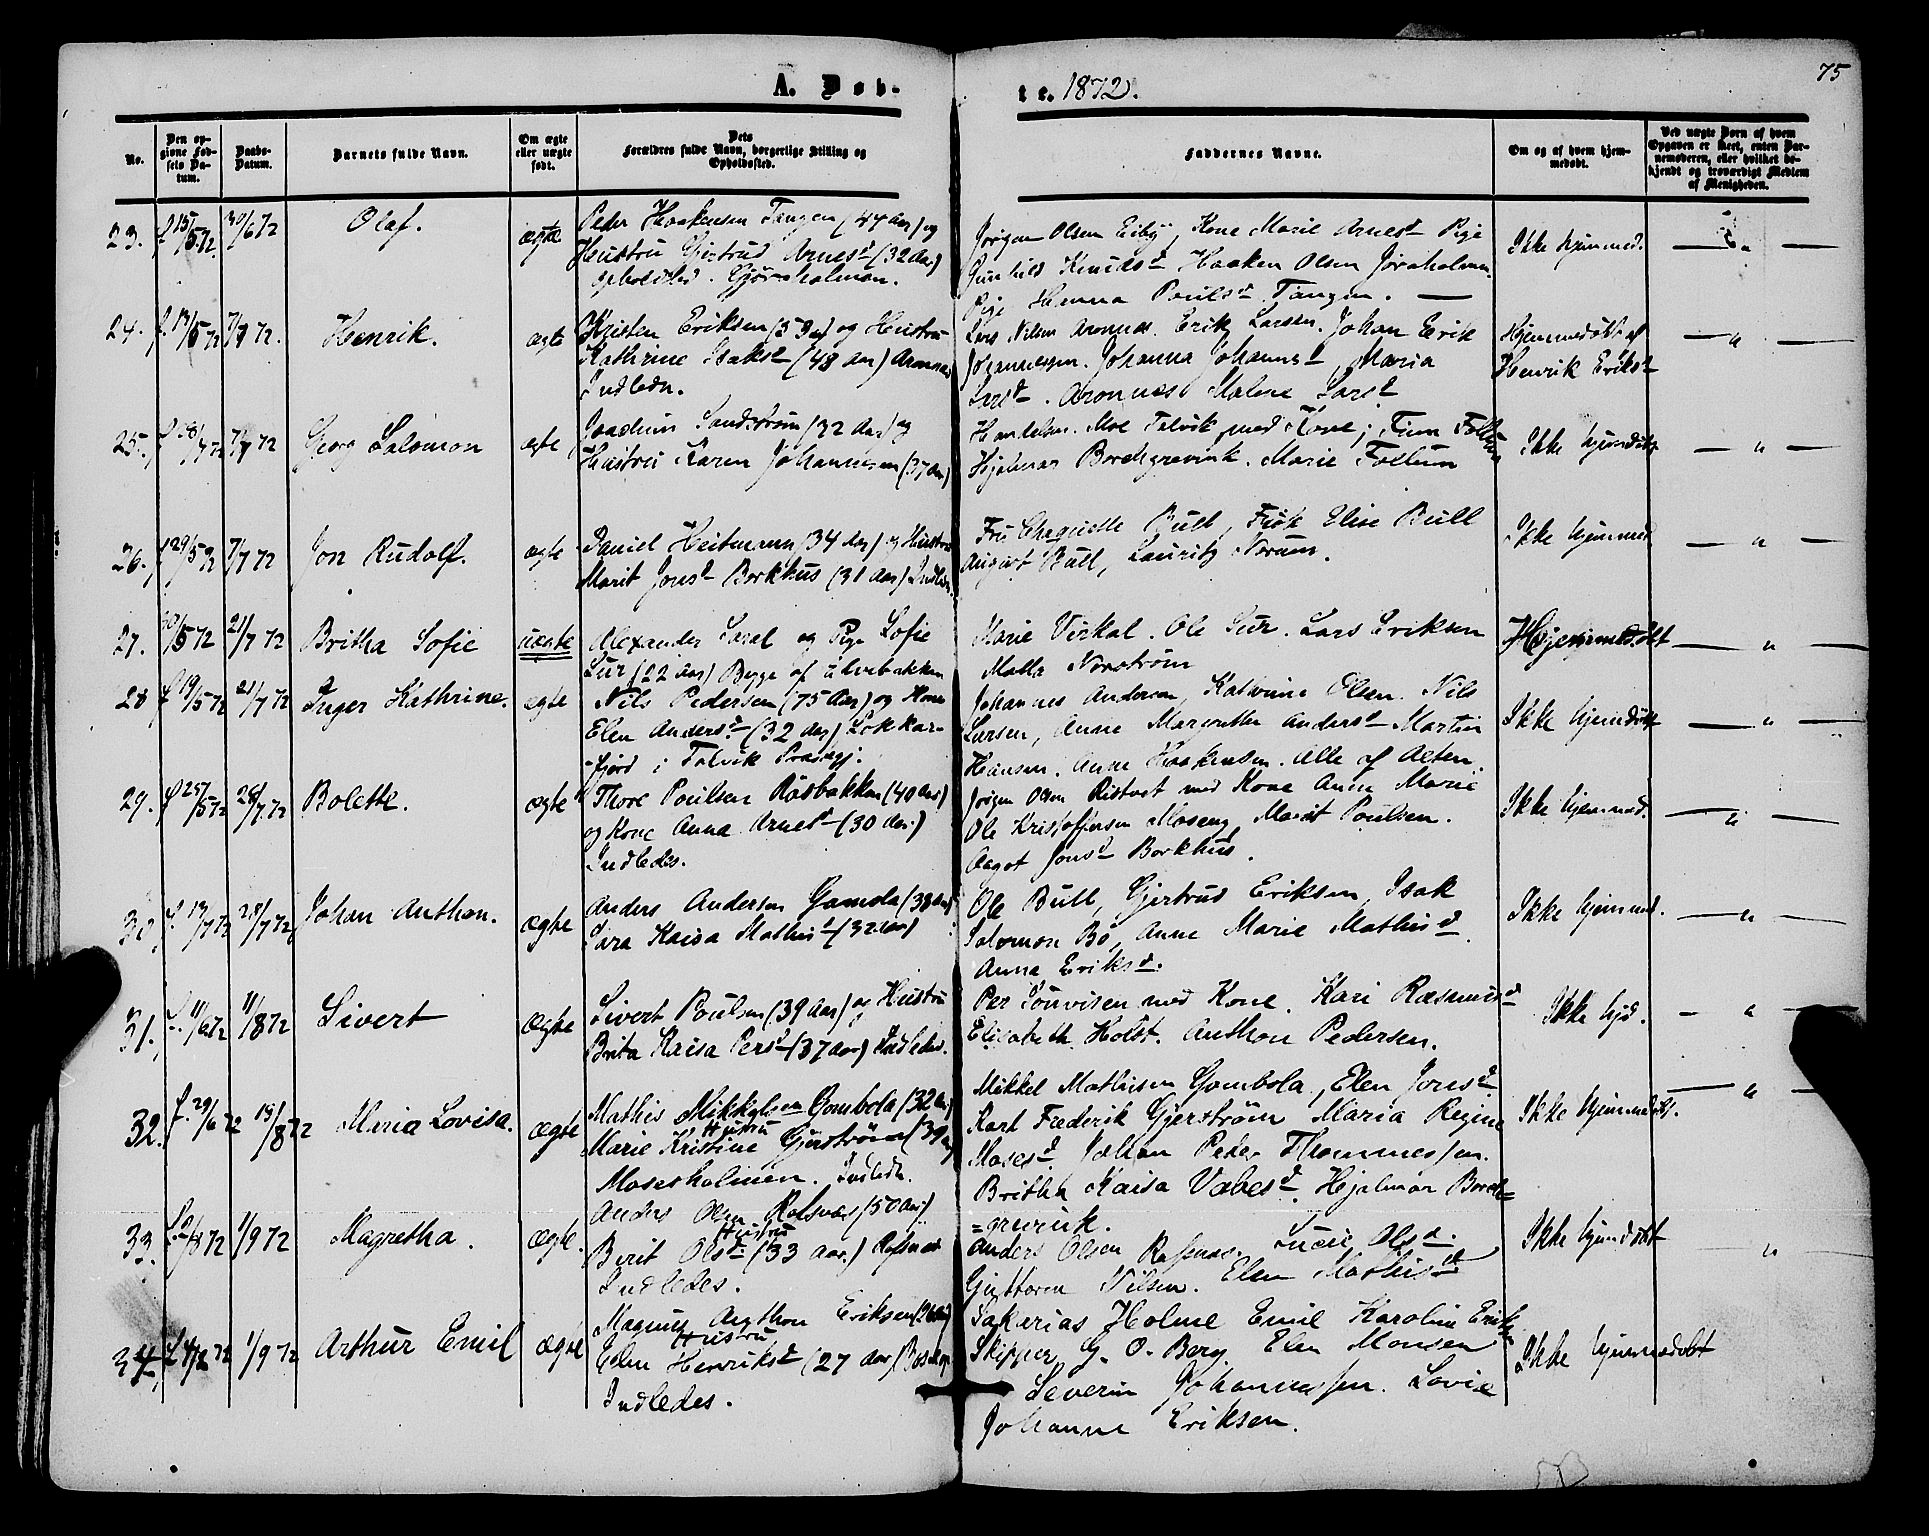 A. Døb-
te. 1872.
75
No.
Den op-
givne Fød-
sels Da-
tum.
Daabs-
Datum.
Barnets fulde Navn.
Om ægte
eller uægte
født.
Dets
Forældres fulde Navn, borgerlige Stilling og
Opholdssted.
Faddernes Navne.
Om og af hvem hjem-
medøbt.
Ved uægte Børn af hvem
Opgaven er skeet, enten Bar-
nemoderen, eller hvilket be-
kjendt og troværdigt Medlem
af Menigheden.
23. f 15/5 72. 30/6 72 Olaf. ægte
Peder Haakensen Tangen (44 Aar) og
Hustru Gjertrud Arnesd (32 Aar)
opholdsted. Gjøraholmen.
Jørgen Olsen Eiby, Kone Marie Arnesd Pige
Gunhild Knudsd Haaken Olsen Jøraholmen.
Pige Henna Poulsd Tangen. —
Ikke hjemmed.
24. f. 13/5 72 7/7 72. Henrik. ægte
Kristen Eriksen (53 Aar) og Hustru
Kathrine Isaksd (48 Aar) Aronnæs
Indledn.
Lars Nilsen Aronnæs. Erik Larsen. Johan Erik
Johannessen. Johanna Johannesd, Maria
Larsd. Aronnæs Malene Larsd
Hjemmedøbt af
Henrik Eriksd
25. f 7 72 7/7 72 Georg Salomon ægte
Joachim Sandstrøm (32 Aar) og
Hustru Karen Johannesen (37 Aar)
Handelsm. Moe Talvik med Kone; Finn Follum
Hjalmar Borchgrevink. Marie Follum
Ikke hjemdøbt
26. f 29/5 72 7/7 72 Jon Rudolf. ægte
Daniel Heitmann (34 Aar) og Hustru
Marit Jonsd Borkhus (31 Aar) Indledn.
Fru Bull, Frøk Elise Bull
August Bull, Lauritz Norum.
Ikke hjemmed
27. 5 72 21/7 72 Britha Sofie uægte
Alexander og Pige Sofie
Sur (22 Aar) Begge af Elvebakken
Marie Virkal. Ole Sur. Lars Eriksen
Norstrøm
Hjemmedøbt
28 f 19/5 72 21/7 72 Inger Kathrine. ægte
Nils Pedersen (75 Aar) og Kone
Elen Andersd (32 Aar) Lokkar-
fjord i Talvik Præstegj.
Johannes Andersen, Kathrine Olsen. Nils
Larsen, Anne Margrethe Andersd Martin
Hansen. Anne Haakensen. Alle af Alten.
Ikke hjemdøbt
29. f 25/5 72 28/7 72 Bolette. ægte
Thore Poulsen Røsbakken (40 Aar)
og Kone Anna Arnesd (30 Aar)
Indledes.
Jørgen Olsen Ristvet med Kone Anne Marie
Ole Kristoffersen Moseng, Marit Poulsen.
Aagot Jonsd Borkhus.
Ikke hjemmed.
30. f. 13/7 72 28/7 72 Johan Anthon. ægte
Anders Andersen Gomola (38 Aar)
Sara Kaisa Mathisd (32 Aar)
Ole Bull, Gjertrud Eriksen, Isak
Salomon Bø, Anne Marie Mathisd.
Anna Eriksd.
Ikke hjemmed.
31. f. 11/6 72 11/8 72 Sivert ægte
Sivert Poulsen (39 Aar) og Hustru
Brita Kaisa Persd (37 Aar) Indledes.
Per med Kone. Kari Rasmusd
Elisabeth Holst. Anthon Pedersen.
Ikke hjd.
32. f. 29/6 72 18/8 72 Maria Lovisa. ægte
Mathis Mikkelsen Gombola (32 Aar)
Hustru
Marie Kristine Gjerstrøm (39
Mosesholmen. Indledn.
Mikkel Mathisen Gombola, Elen Jonsd
Karl Frederik Gjerstrøm Maria Regine
Mosesd. Johan Peder Thommessen.
Britha Kaisa Vabesd. Hjalmar Borch=
=grevink.
Ikke hjemmedøbt.
33. 8 72 1/9 72 Magretha. ægte.
Anders Olsen (50 Aar)
Hustru
Berit Olsd (33 Aar.) Rafsnæs
Indledes.
Anders Olsen Rafsnæs. Lucie Olsd.
Guttorm Nilsen. Elen Mathisd
Ikke hjemdøbt
34. 72 1/9 72 Arthur Emil ægte
Magnus Angthon Eriksen
Hustru
Elen Henriksd (27 Aar) Bossekop
Indledes.
Sakerias Holme Emil Karoline Eriksen
Skipper G. O. Berg. Elen Monsen
Severin Johannessen. Lovise
Johanne Eriksen.
Ikke hjemmedøbt